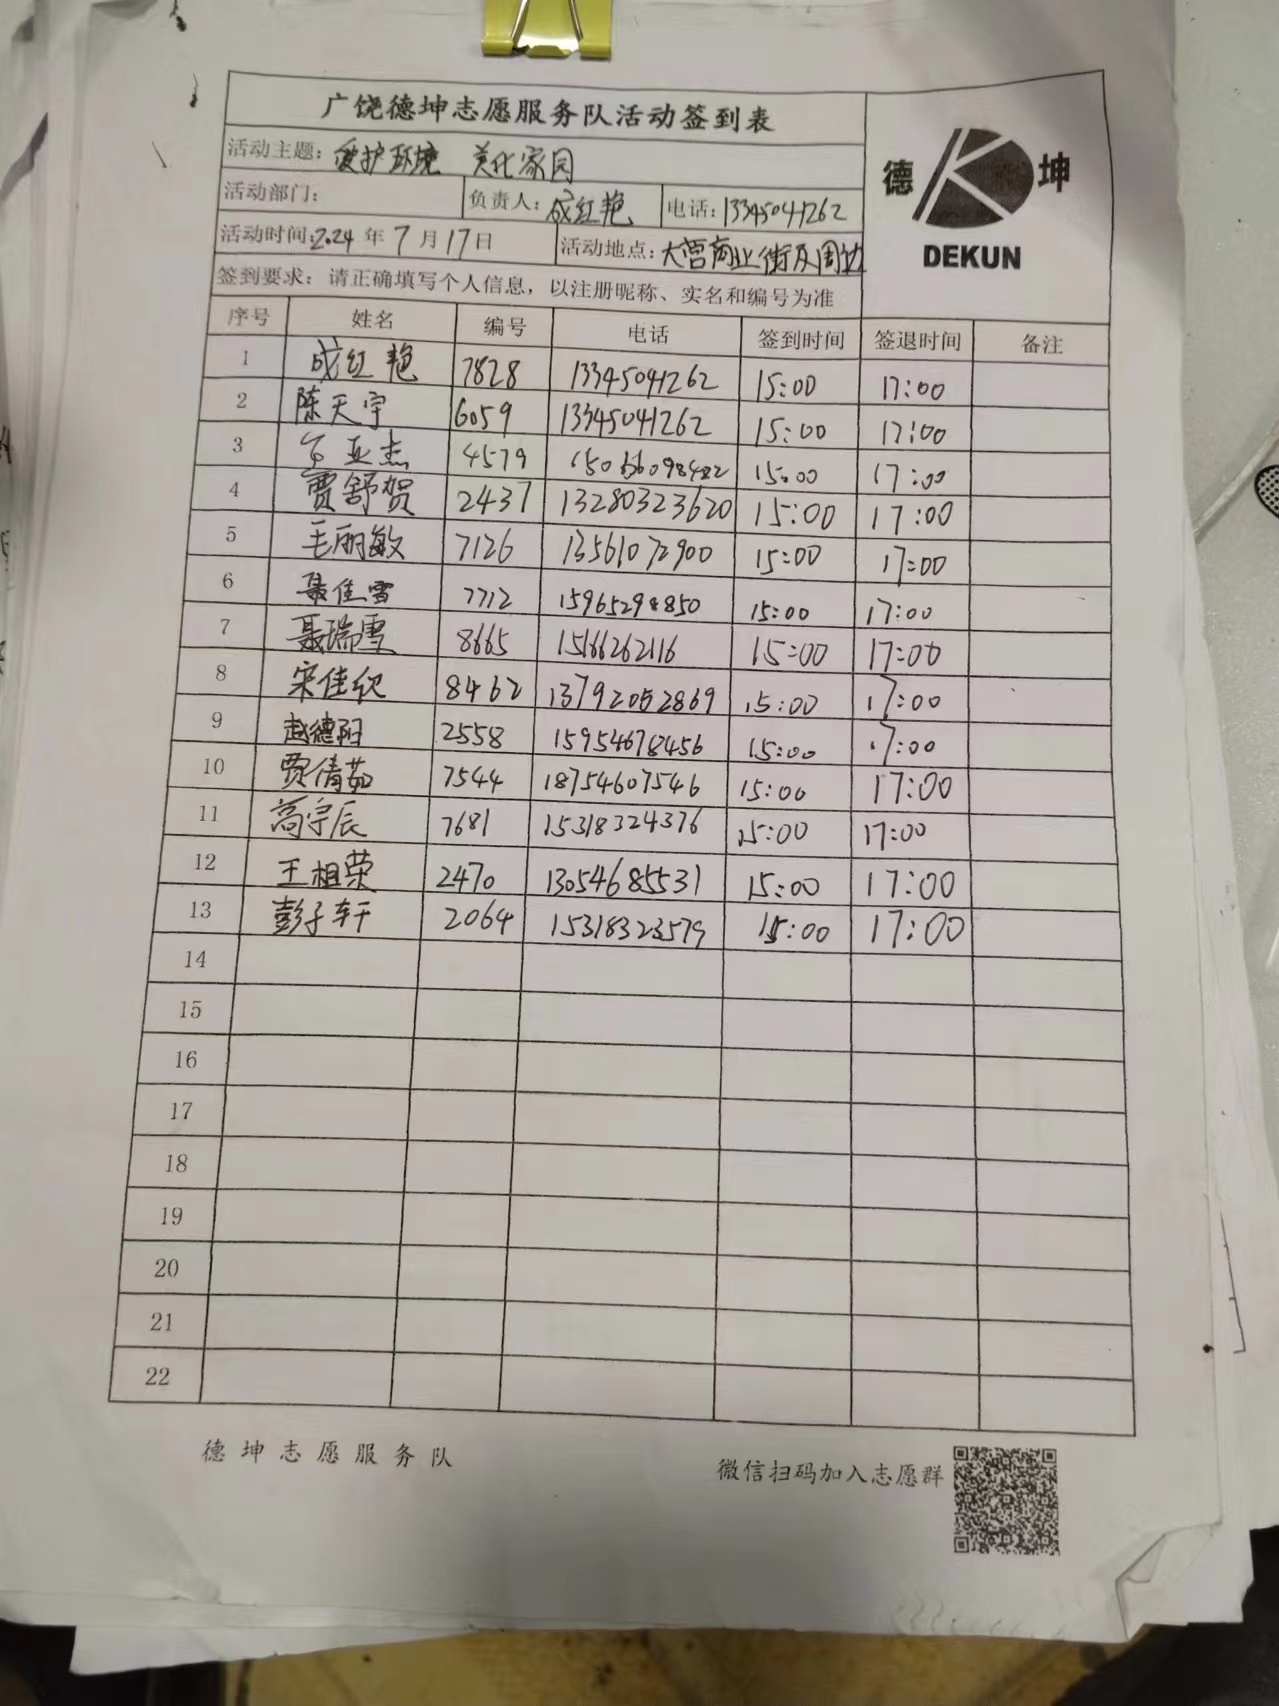 广饶德坤志愿服务队活动签到表
活动主题：爱护环境 美化家园
德 坤
DEKUN
活动部门： 负责人：成红艳 电话：13345041262
活动时间：2024年7月17日 活动地点：大营商业街及周边
签到要求：请正确填写个人信息，以注册昵称、实名和编号为准
序号 姓名 编号 电话 签到时间 签退时间 备注
1 成红艳 7828 13345041262 15:00 17:00
2 陈天宇 6059 13345041262 15:00 17:00
3 亚杰 4579 15:00 17:00
4 贾舒贺 2437 13280323620 15:00 17:00
5 毛丽敏 7126 13561072900 15:00 17:00
6 聂佳雪 7712 15965298850 15:00 17:00
7 聂瑞雪 8665 15166262116 15:00 17:00
8 宋佳欣 8462 13792052869 15:00 17:00
9 赵德阳 2558 15954678456 15:00 17:00
10 贾倩茹 7544 18754607546 15:00 17:00
11 高宇辰 7681 15318324376 15:00 17:00
12 王祖荣 2470 13054685531 15:00 17:00
13 彭子轩 2064 15318323579 15:00 17:00
14
15
16
17
18
19
20
21
22
德坤志愿服务队 微信扫码加入志愿群